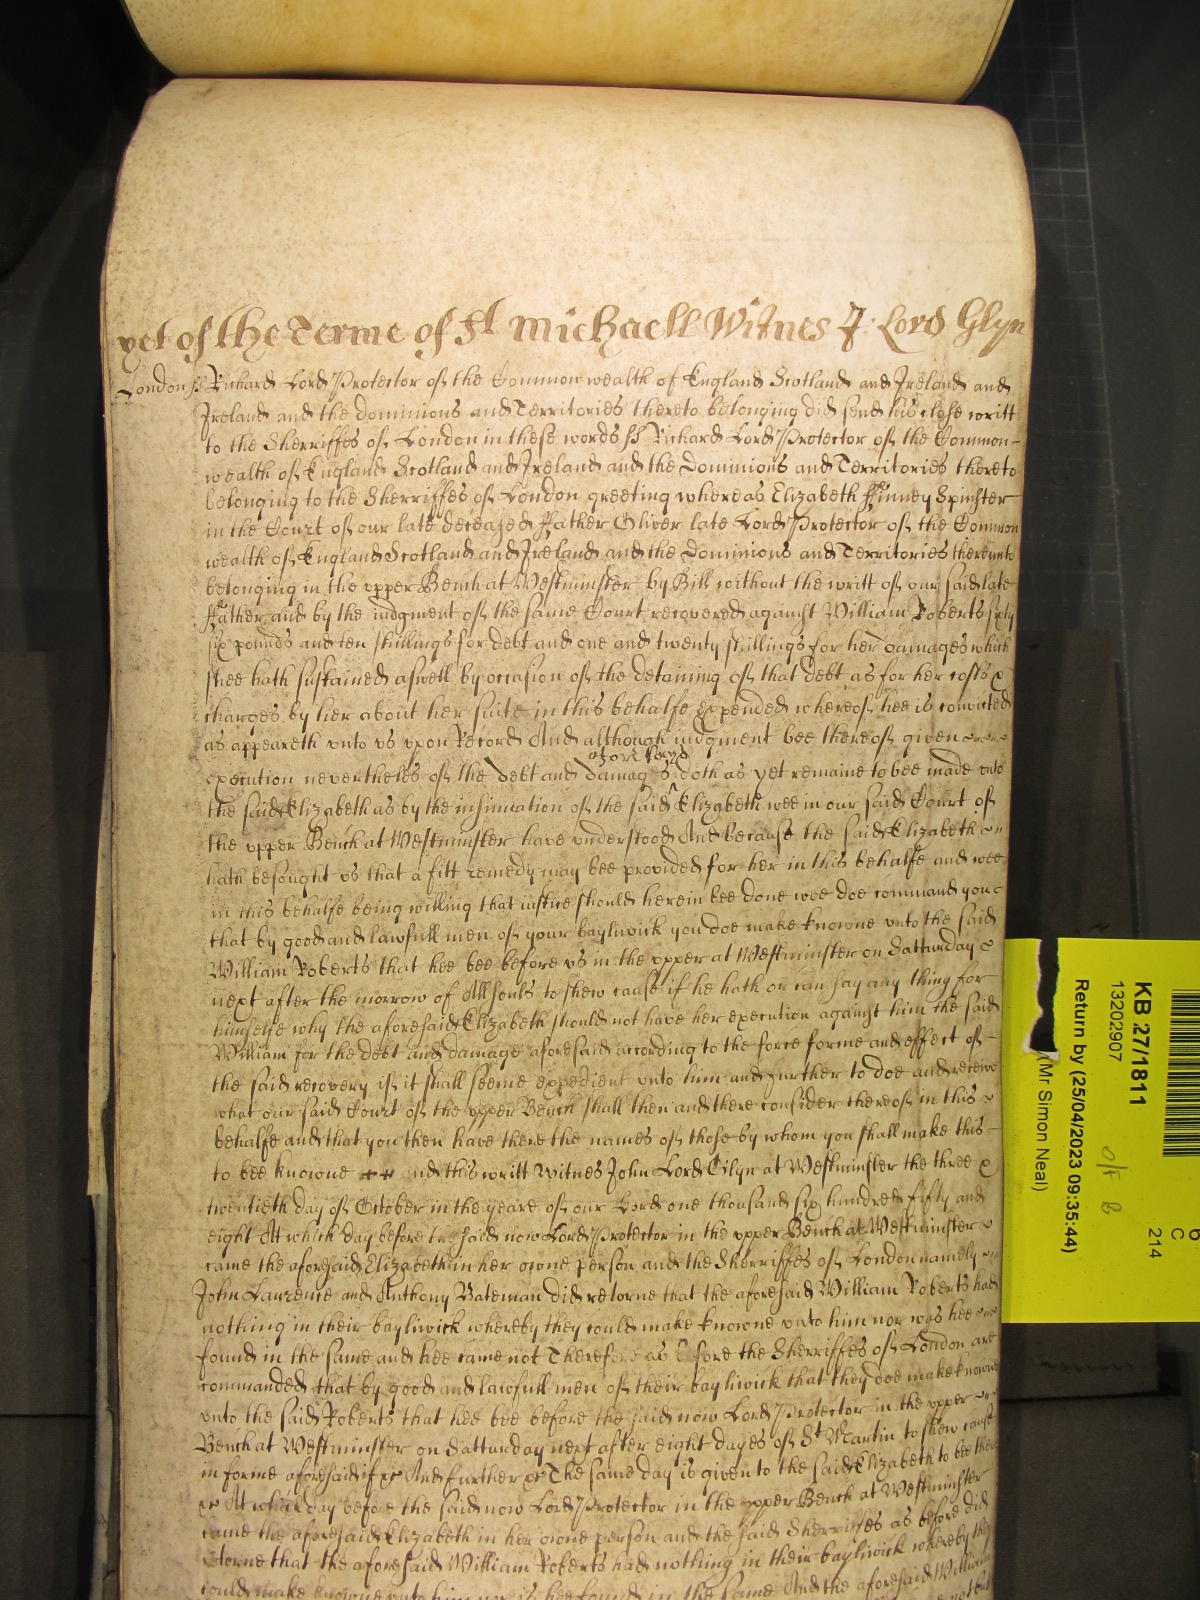 yet of the Terme of St Michaell Witnes J: Lord Glyn
London ss Richard Lord Protector of the Common wealth of England Scotland and Ireland and
Ireland and the dominions and Territories thereto belonging did send his close writt
to the Sherriffes of London in these words ss Richard Lord Protector of the Common-
wealth of England Scotland and Ireland and the Dominions and Territories thereto
belonging to the Sherriffes of London greeting whereas Elizabeth ffinney Spinster
in the Court of our late deceased ffather Oliver late Lord Protector of the Common
wealth of England Scotland and Ireland and the Dominions and Territories thereunto
belonging in the vpper Bench at Westminster by Bill without the writt of our said late
ffather and by the iudgment of the same Court recovered against William Roberts sixty
six pounds and ten shillings for debt and one and twenty shillings for her damages which
shee hath sustained aswell by occasion of the detaining of that debt as for her costs &
charges by her about her suite in this behalfe expended whereof hee is convicted
as appeareth vnto vs vpon Record And although iudgment bee thereof given
aforesayd
execution neverthelēs of the debt and damages ^ doth as yet remaine to bee made vnto
the said Elizabeth as by the insinuation of the said Elizabeth wee in our said Court of
the vpper Bench at Westminster have vnderstood And because the said Elizabeth
hath besought vs that a fitt remedy may bee provided for her in this behalfe and wee
in this behalfe being willing that iustice should herein bee done wee doe command you
that by good and lawfull men of your bayliwick you doe make knowne vnto the said
William Roberts that hee bee before vs in the vpper at Westminster on Satturday
next after the morrow of All souls to shew cause if he hath or can say any thing for
himselfe why the aforesaid Elizabeth should not have her execution against him the said
William for the debt and damage aforesaid according to the force forme and effect of
the said recovery if it shall seeme expedient vnto him and further to doe and receive
what our said Court of the vpper Bench shall then and there consider thereof in this
behalfe and that you then have there the names of those by whom you shall make this
to bee knowne and this writt Witnes John Lord Glyn at Westminster the three &
twentieth day of October in the yeare of our Lord one thousand six hundred fifty and
eight At which day before the said now Lord Protector in the vpper Bench at Westminster
came the aforesaid Elizabeth in her owne person and the Sherriffes of London namely
John Laurence and Anthony Bateman did retorne that the aforesaid William Roberts had
nothing in their bayliwick whereby they could make knowne vnto him nor was hee
found in the same and hee came not Therefore as before the Sherriffes of London are
commanded that by good and lawfull men of their bayliwick that they doe make knowne
vnto the said Roberts that hee bee before the said now Lord Protector in the vpper
Bench at Westminster on Satturday next after eight dayes of St Martin to shew cause
in forme aforesaid if &c And further &c The same day is given to the said Elizabeth to bee there
&c At which day before the said now Lord Protector in the vpper Bench at Westminster
came the aforesaid Elizabeth in her owne person and the said Sherriffes as before did
retorne that the aforesaid William Roberts had nothing in their bayliwick whereby they
could make knowne vnto him nor is hee found in the same And the aforesaid William
KB 27/1811
13202907
Return by (25/04/2023 09:35:44)
(Mr Simon Neal)
o/f B
6
C
214